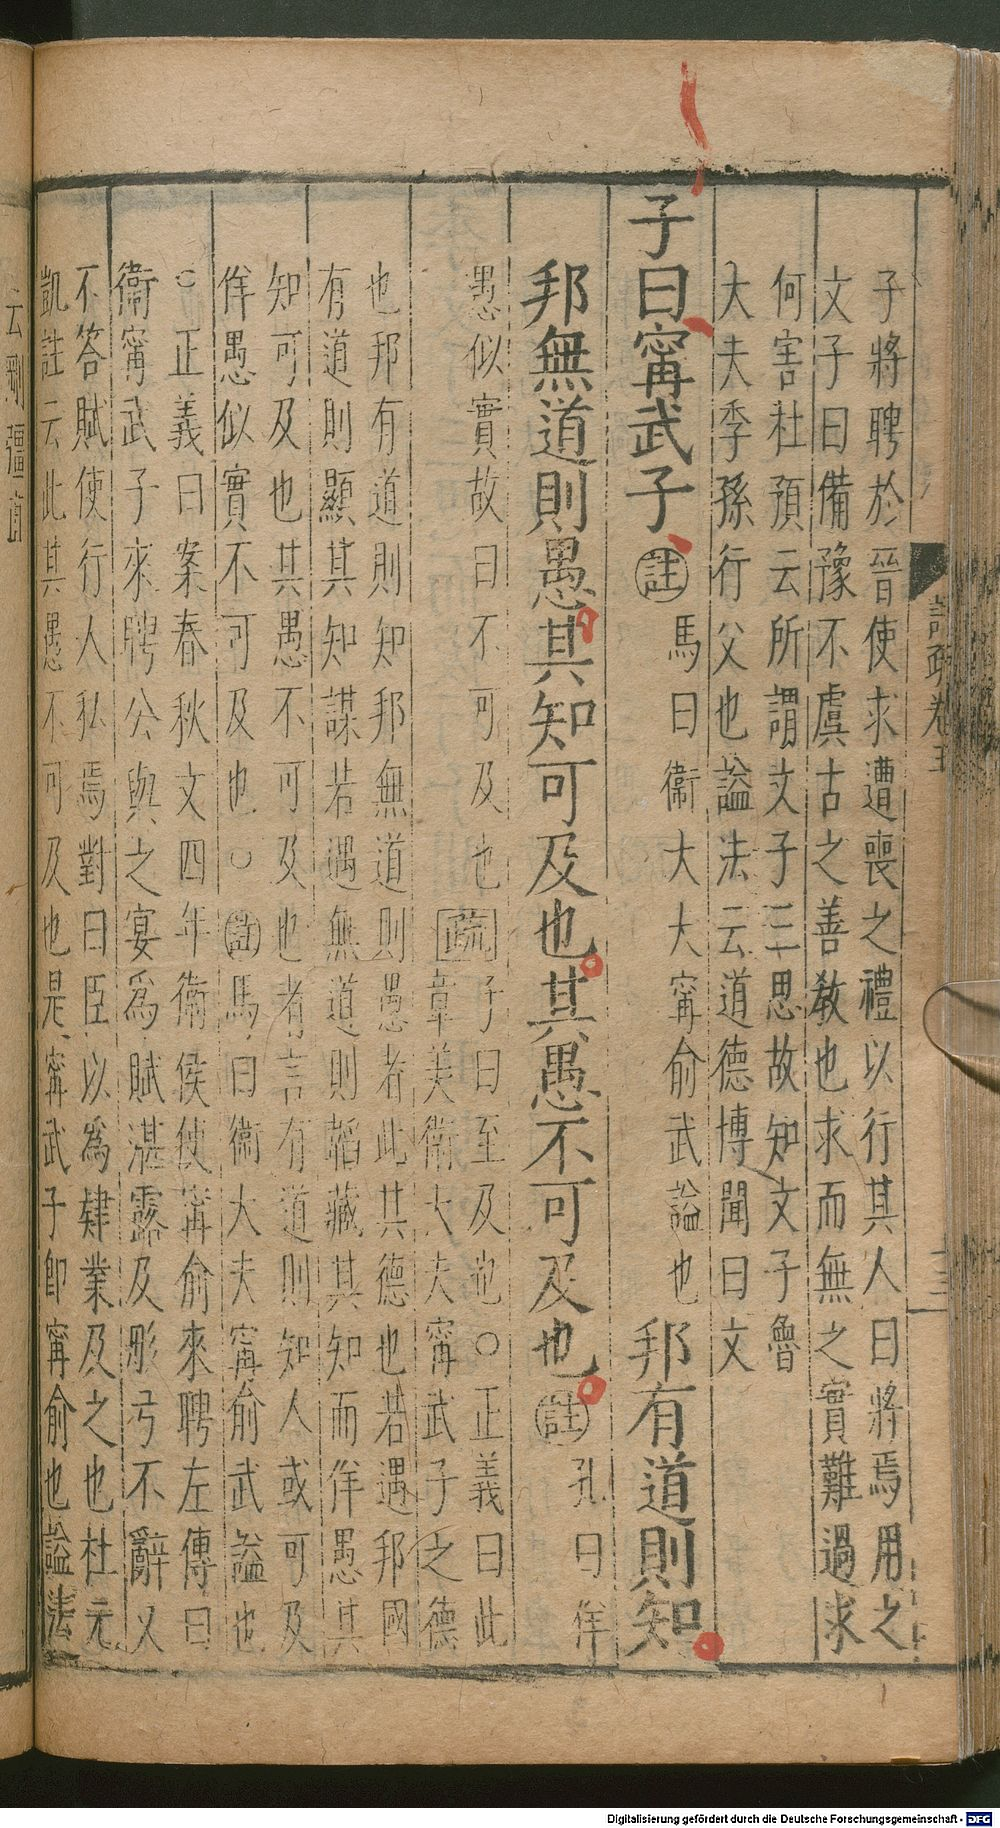 子將聘於晉使求遭喪之禮以行其人曰將焉用之
文子曰備豫不虞古之善教也求而無之實難過求
何害杜預云所謂文子三思故知文子魯
大夫季孫行父也謚法云道德博聞曰文
子曰甯武子註馬曰衞大大甯俞武謚也邦有道則知
邦無道則愚其知可及也其愚不可及也註孔曰佯
愚似實故曰不可及也疏子曰至及也○正義曰此
章美衞大夫甯武子之德
也邦有道則知邦無道則愚者此其德也若遇邦國
有道則顯其知謀若遇無道則韜藏其知而佯愚其
知可及也其愚不可及也者言有道則知人或可及
佯愚似實不可及也○註馬曰衞大夫甯俞武謚也
○正義曰案春秋文四年衞侯使甯俞來聘左傳曰
衞甯武子來聘公與之宴爲賦湛露及彤弓不辭又
不答賦使行人私焉對曰臣以爲肄業及之也杜元
凱註云此其愚不可及也是甯武子即甯俞也謚法
云剛彊直
註疏卷五
Digitalisierung gefördert durch die Deutsche Forschungsgemeinschaft - DFG